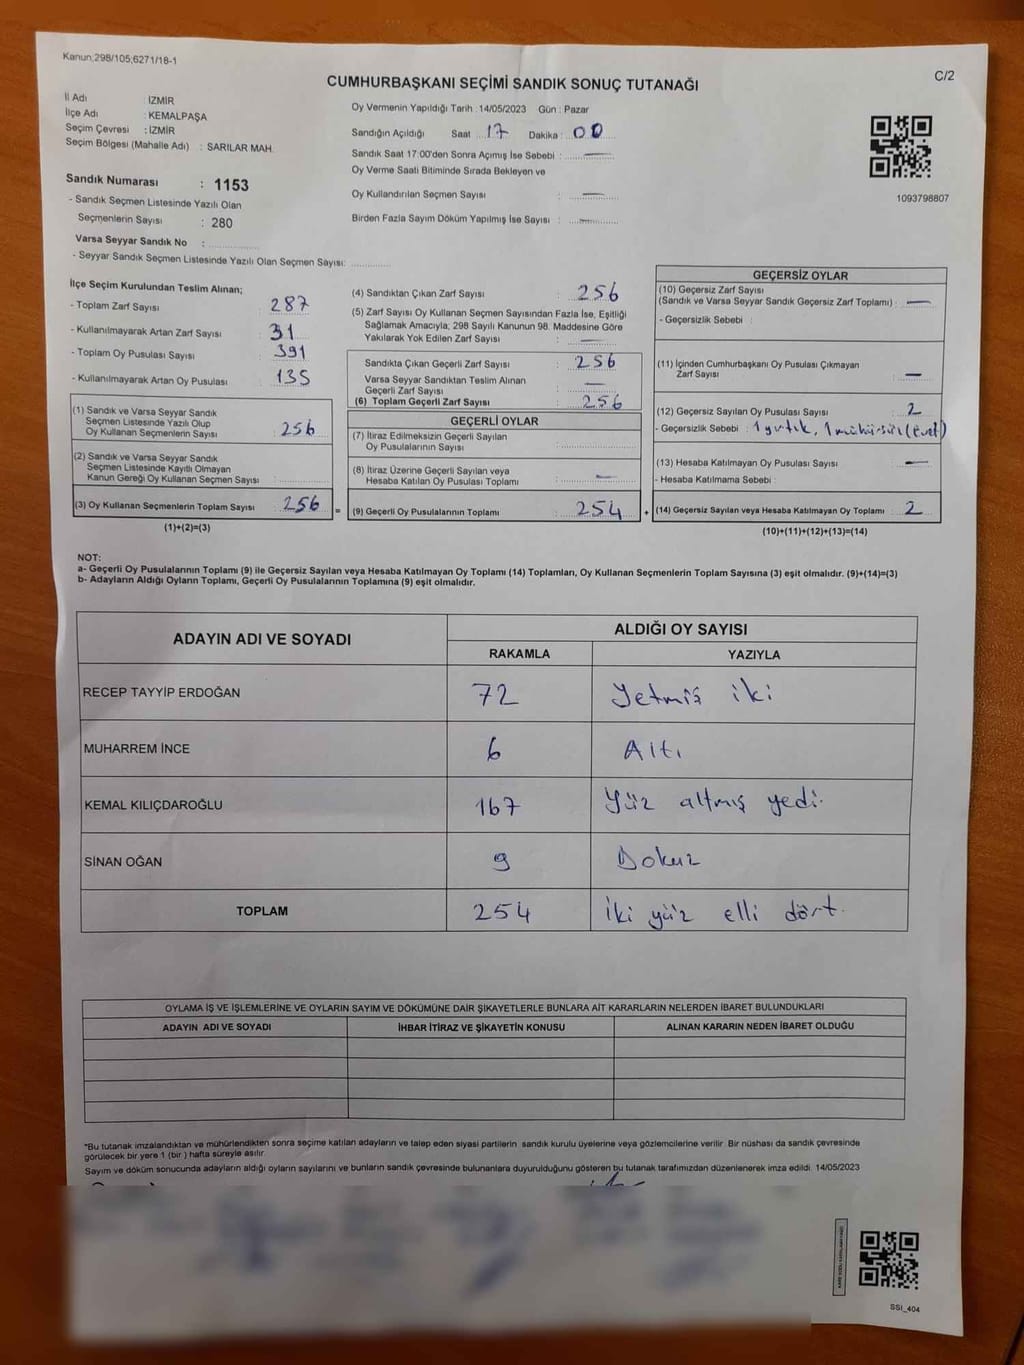 Kanun;298/105;6271/18-1
C/2
CUMHURBAŞKANI SEÇİMİ SANDIK SONUÇ TUTANAĞI
İl Adı : İZMİR
İlçe Adı : KEMALPAŞA
Seçim Çevresi : İZMİR
Seçim Bölgesi (Mahalle Adı) : SARILAR MAH.
Sandık Numarası : 1153
- Sandık Seçmen Listesinde Yazılı Olan
Seçmenlerin Sayısı : 280
Varsa Seyyar Sandık No :
- Seyyar Sandık Seçmen Listesinde Yazılı Olan Seçmen Sayısı:
Oy Vermenin Yapıldığı Tarih : 14/05/2023 Gün : Pazar
Sandığın Açıldığı Saat : 17 Dakika : 00
Sandık Saat 17:00'den Sonra Açımış İse Sebebi : —
Oy Verme Saati Bitiminde Sırada Bekleyen ve
Oy Kullandırılan Seçmen Sayısı : —
Birden Fazla Sayım Döküm Yapılmış İse Sayısı : —
1093798807
İlçe Seçim Kurulundan Teslim Alınan;
- Toplam Zarf Sayısı : 287
- Kullanılmayarak Artan Zarf Sayısı : 31
- Toplam Oy Pusulası Sayısı : 391
- Kullanılmayarak Artan Oy Pusulası : 135
(1) Sandık ve Varsa Seyyar Sandık
Seçmen Listesinde Yazılı Olup
Oy Kullanan Seçmenlerin Sayısı : 256
(2) Sandık ve Varsa Seyyar Sandık
Seçmen Listesinde Kayıtlı Olmayan
Kanun Gereği Oy Kullanan Seçmen Sayısı :
(3) Oy Kullanan Seçmenlerin Toplam Sayısı : 256
(1)+(2)=(3)
=
(4) Sandıktan Çıkan Zarf Sayısı : 256
(5) Zarf Sayısı Oy Kullanan Seçmen Sayısından Fazla İse, Eşitliği
Sağlamak Amacıyla; 298 Sayılı Kanunun 98. Maddesine Göre
Yakılarak Yok Edilen Zarf Sayısı : —
Sandıkta Çıkan Geçerli Zarf Sayısı : 256
Varsa Seyyar Sandıktan Teslim Alınan
Geçerli Zarf Sayısı : —
(6) Toplam Geçerli Zarf Sayısı : 256
GEÇERLİ OYLAR
(7) İtiraz Edilmeksizin Geçerli Sayılan
Oy Pusulalarının Sayısı :
(8) İtiraz Üzerine Geçerli Sayılan veya
Hesaba Katılan Oy Pusulası Toplamı : —
(9) Geçerli Oy Pusulalarının Toplamı : 254
+
GEÇERSİZ OYLAR
(10) Geçersiz Zarf Sayısı
(Sandık ve Varsa Seyyar Sandık Geçersiz Zarf Toplamı) : —
- Geçersizlik Sebebi :
(11) İçinden Cumhurbaşkanı Oy Pusulası Çıkmayan
Zarf Sayısı : —
(12) Geçersiz Sayılan Oy Pusulası Sayısı : 2
- Geçersizlik Sebebi : 1 yırtık, 1 mühürsüz (Evet)
(13) Hesaba Katılmayan Oy Pusulası Sayısı : —
- Hesaba Katılmama Sebebi :
(14) Geçersiz Sayılan veya Hesaba Katılmayan Oy Toplamı : 2
(10)+(11)+(12)+(13)=(14)
NOT:
a- Geçerli Oy Pusulalarının Toplamı (9) ile Geçersiz Sayılan veya Hesaba Katılmayan Oy Toplamı (14) Toplamları, Oy Kullanan Seçmenlerin Toplam Sayısına (3) eşit olmalıdır. (9)+(14)=(3)
b- Adayların Aldığı Oyların Toplamı, Geçerli Oy Pusulalarının Toplamına (9) eşit olmalıdır.
ADAYIN ADI VE SOYADI ALDIĞI OY SAYISI
RAKAMLA YAZIYLA
RECEP TAYYİP ERDOĞAN 72 Yetmiş iki
MUHARREM İNCE 6 Altı
KEMAL KILIÇDAROĞLU 167 Yüz altmış yedi.
SİNAN OĞAN 9 Dokuz
TOPLAM 254 İki yüz elli dört.
OYLAMA İŞ VE İŞLEMLERİNE VE OYLARIN SAYIM VE DÖKÜMÜNE DAİR ŞİKAYETLERLE BUNLARA AİT KARARLARIN NELERDEN İBARET BULUNDUKLARI
ADAYIN ADI VE SOYADI İHBAR İTİRAZ VE ŞİKAYETİN KONUSU ALINAN KARARIN NEDEN İBARET OLDUĞU
*Bu tutanak imzalandıktan ve mühürlendikten sonra seçime katılan adayların ve talep eden siyasi partilerin sandık kurulu üyelerine veya gözlemcilerine verilir. Bir nüshası da sandık çevresinde
görülecek bir yere 1 (bir ) hafta süreyle asılır.
Sayım ve döküm sonucunda adayların aldığı oyların sayılarını ve bunların sandık çevresinde bulunanlara duyurulduğunu gösteren bu tutanak tarafımızdan düzenlenerek imza edildi. 14/05/2023
SSI_404